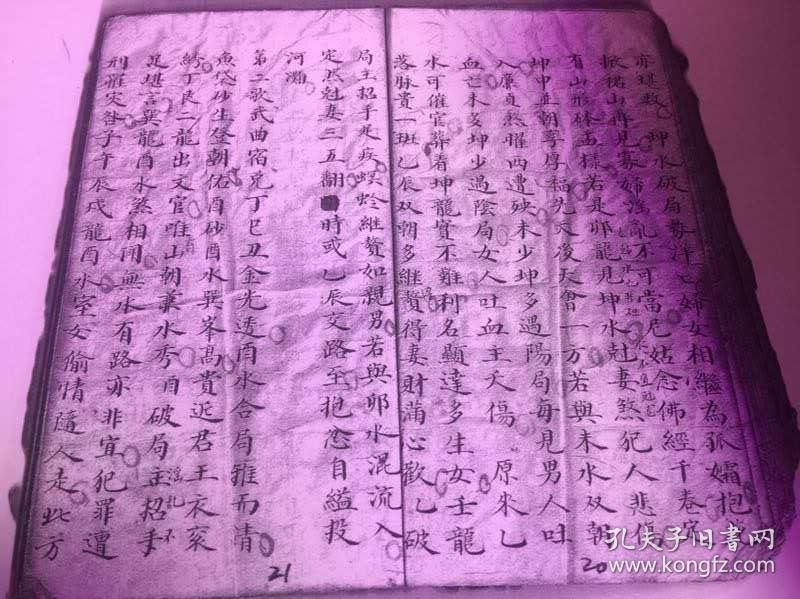 亦堪救 坤水破局勢洋乙婦女相繼為孤孀抱
裙山再見寡婦淫亂不可當尼姑念佛經千卷
有山形 若是卯龍見坤水尅妻煞犯人悲
坤申並朝孚厚福先天後天會一方若與未水双朝
入廉貞煞曜両遭殃未少坤多過陽局每見男人吐
血亡未多坤少過陰局女人吐血主夭傷 原來乙
水可催官葬着坤龍實不難利名顯達多生女壬龍
落脉貴一班乙辰双朝多維贅得妻財滿心歡乙破
局主招手足疾螟蛉継贅如親男若與卯水混流入
定然尅妻三五翻 時或乙辰交路至抱忿自縊投
河灘
第二歌武曲宿兌丁巳丑金先透酉水合局雅而清
魚袋砂生登朝佑酉砂酉水巽峯高貴近君王衣
紡丁艮二龍出文官唯山朝 水秀酉破局主招手
足堪言巽龍酉水煞相閗無水有路亦非宜犯罪遭
刑罹灾咎子午辰戌龍酉水室女偷情隨人走此方
20
21
孔夫子旧书网
www.kongfz.com